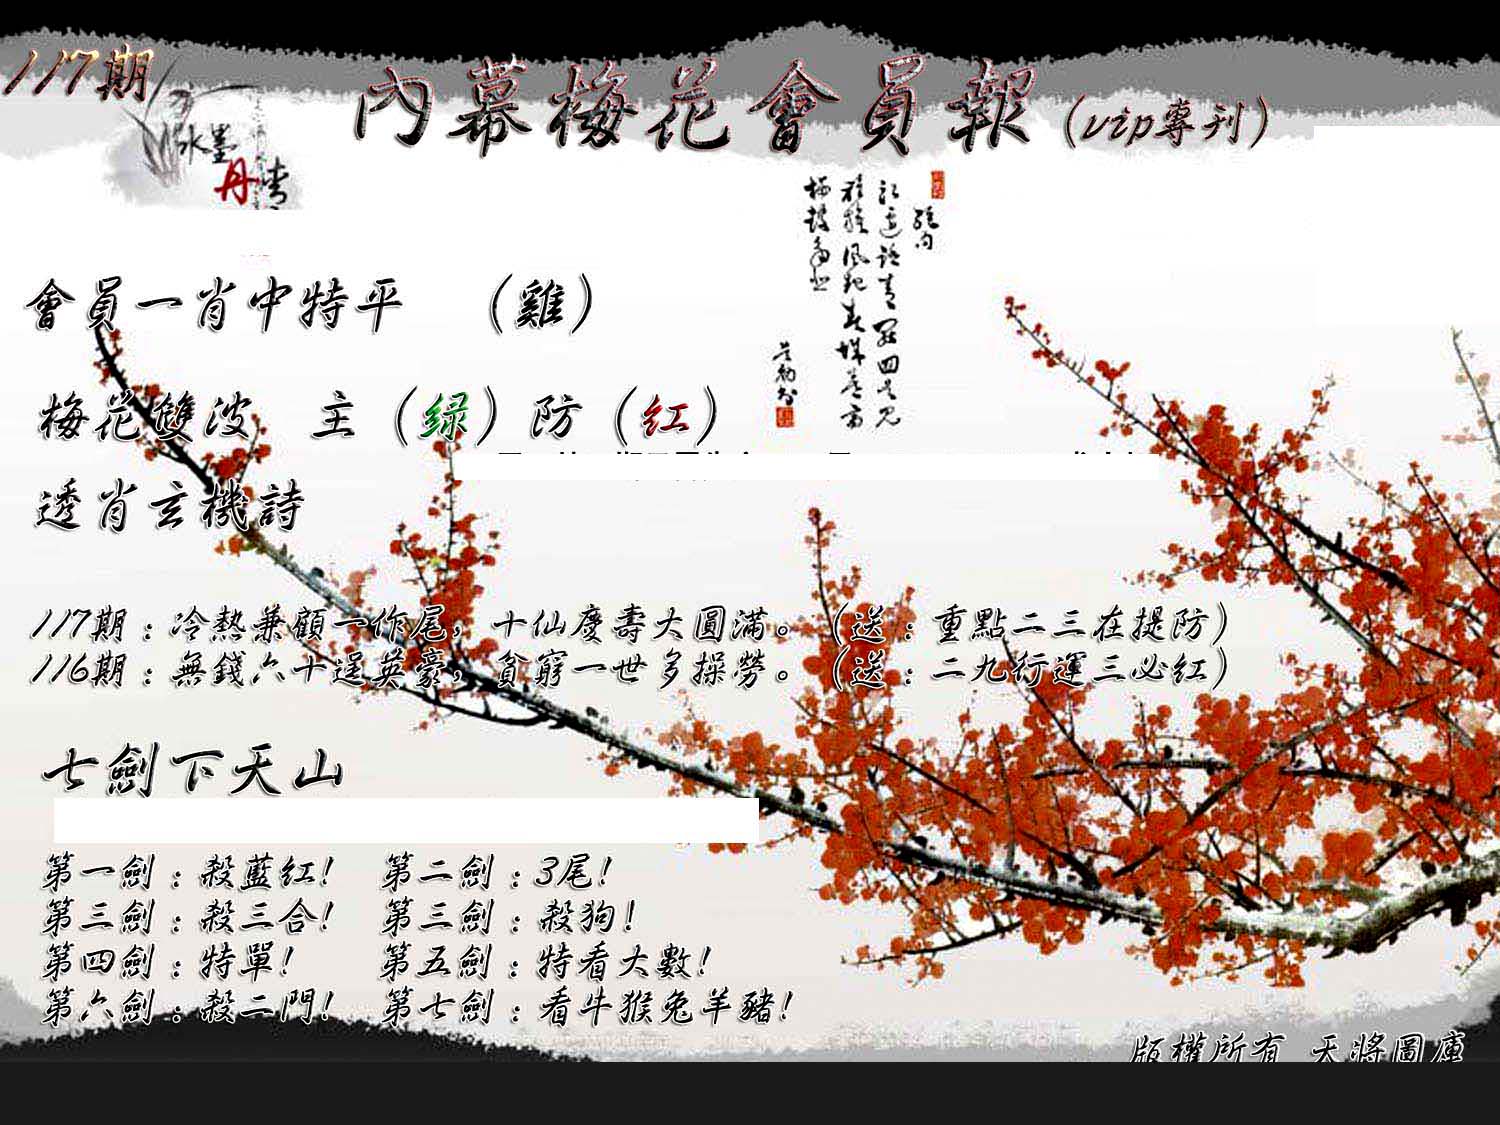 117期
內幕梅花會員報(vip專刊)
水墨
丹青
會員一肖中特平 (雞)
梅花雙波 主(绿)防(红)
透肖玄機詩
117期:冷熱兼顧一作尾,十仙慶壽大圓滿。(送:重點二三在提防)
116期:無錢六十逞英豪,貧窮一世多操勞。(送:二九行運三必紅)
七劍下天山
第一劍:殺藍紅! 第二劍:3尾!
第三劍:殺三合! 第三劍:殺狗!
第四劍:特單! 第五劍:特看大數!
第六劍:殺二門! 第七劍:看牛猴兔羊豬!
版權所有 天將圖庫